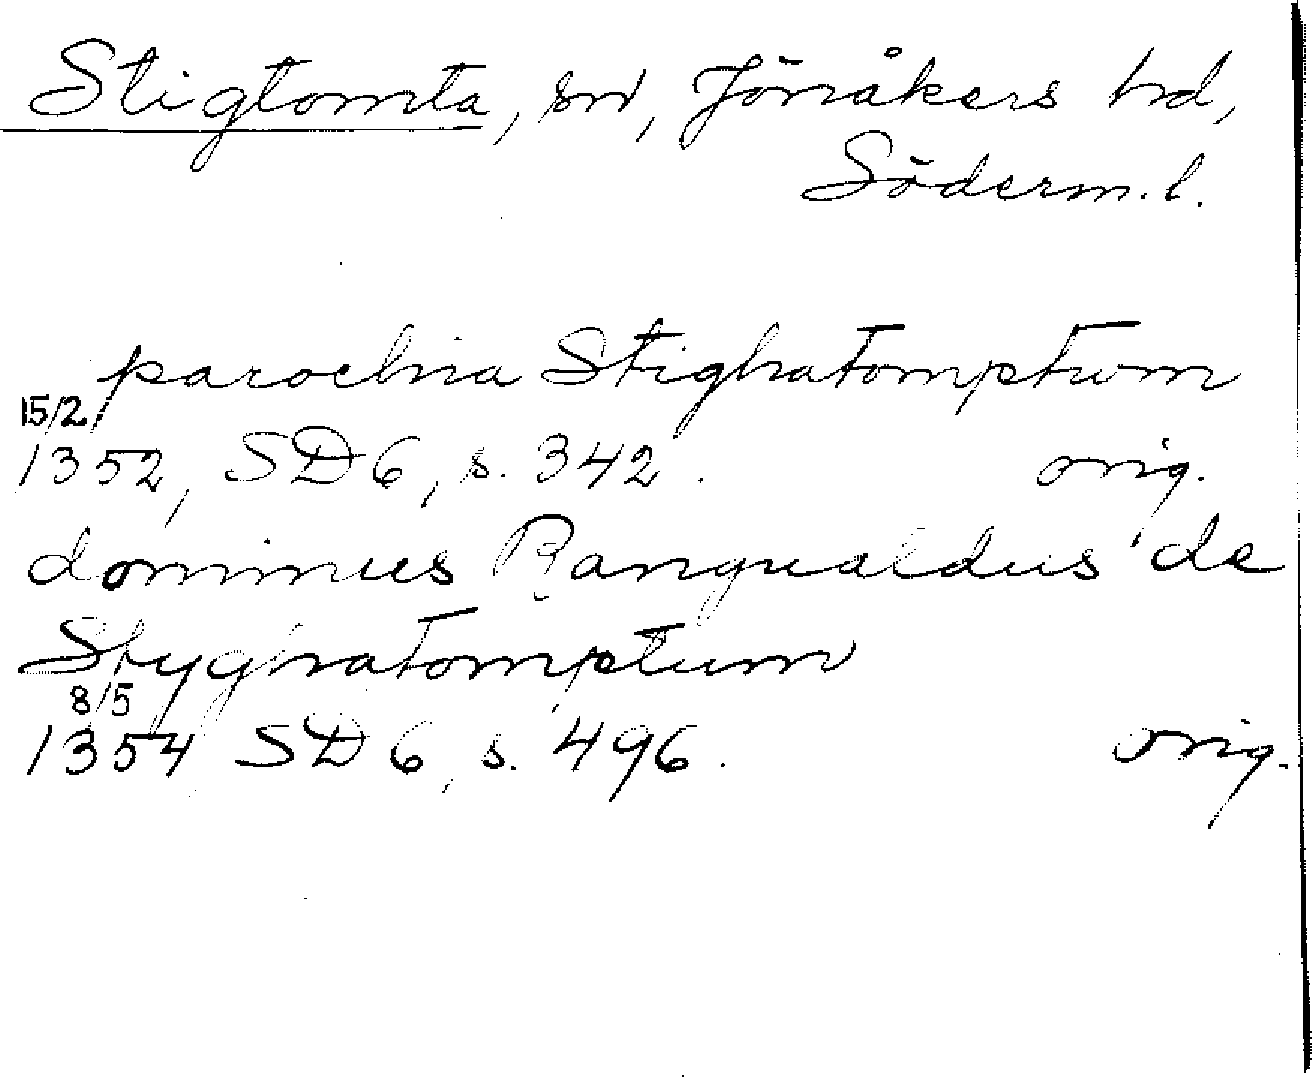 Stigtomta, sn, Jönåkers hd,
Söderm. l.
parochia Stighatomptum
15/2
1352, SD 6, s. 342. orig.
dominus Rangualdus de
Styghatomptum
8/5
1354 SD 6, s. 496. orig.